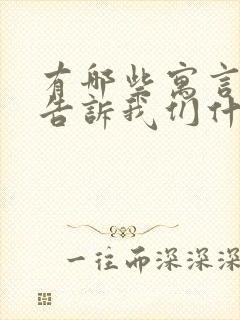 有哪些寓言
告訴我们什
一往而深深深